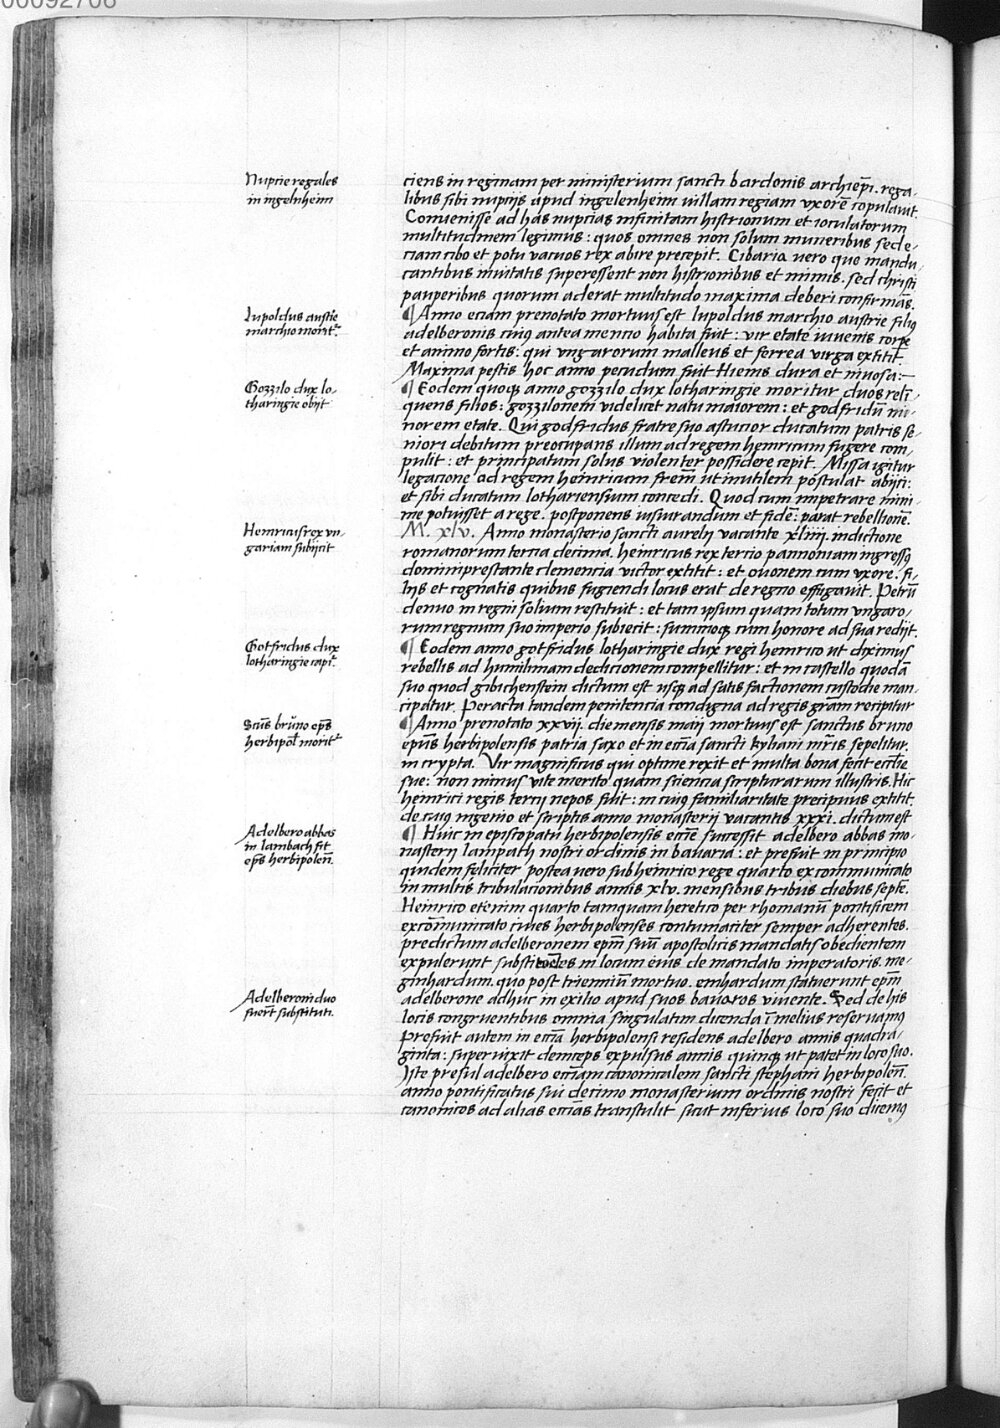 00092708
Nuptie regales
in ingelnheim
ciens in reginam per ministerium sancti bardonis archiepi. rega-
libus sibi nuptijs apud ingelenheim uillam regiam vxorē copulauit.
Conuenisse ad has nuptias infinitam histrionum et ioculatorum
multitudinem legimus: quos omnes non solum muneribus sed e-
ciam cibo et potu vacuos rex abire precepit. Cibaria uero que mandu-
cantibus inuitatis superessent non histrionibus et mimis. sed christi
pauperibus quorum aderat multitudo maxima deberi confirmās.
Lupoldus austie
marchio morit᷑.
¶ Anno eciam prenotato mortuus est lupoldus marchio austrie filiꝰ
adelberonis cuiꝰ antea mentio habita fuit: vir etate iuuenis corpe
et animo fortis: qui vngarorum malleus et ferrea virga extitit.
Maxima pestis hoc anno pecudum fuit Hiems dura et niuosa:—
Gozzilo dux lo-
tharingie obijt
¶ Eodem quoqꝫ anno gozzilo dux lotharingie moritur duos reli-
quens filios: gozzilonem videlicet natu maiorem: et godfridū mi-
norem etate. Qui godfridus fratre suo astucior ducatum patris se-
niori debitum preocupans illum ad regem heinricum fugere com-
pulit: et principatum solus violenter possidere cepit. Missa igitur
legacione ad regem heinricum frem̄ ut inutilem postulat abijci:
et sibi ducatum lothariensium concedi. Quod cum impetrare mini-
me potuisset a rege. postponens iusiurandum et fidē: parat rebellionē.
Heinricus rex vn-
gariam subijcit
M. xlv. Anno monasterio sancti aurelij vacante xliiij. indictione
romanorum tercia decima. heinricus rex tercio pannoniam ingressꝰ
domini prestante clemencia victor extitit: et ouonem cum vxore. fi-
lijs et cognatis quibus fugiendi locus erat de regno effugauit. Petrū
denuo in regni solium restituit: et tam ipsum quam totum vngaro-
rum regnum suo imperio subiecit: summoqꝫ cum honore ad sua redijt.
Gotfridus dux
lotharingie capi᷑.
¶ Eodem anno gotfridus lotharingie dux regi heinrico ut diximus
rebellis ad humilimam dedicionem compellitur: et in castello quodā
suo quod gibichenstein dictum est usqꝫ ad satisfactionem custodie man-
cipatur. Peracta tandem penitencia condigna ad regis grām recipitur
Scūs brūno ep̄s
herbipoł morit᷑
¶ Anno prenotato xxvij. die mensis maij mortuus est sanctus bruno
epūs herbipolensis patria saxo et in ecc̄ia sancti kyliani mr̄is sepelitur.
in crypta. Vir magnificus qui optime rexit et multa bona fecit ecclīe
sue: non minus vite merito quam sciencia scripturarum illustris. Hic
heinrici regis tercij nepos fuit: in cuiꝰ familiaritate precipuus extitit.
de cuiꝰ ingenio et scriptis anno monasterij vacantis xxxi. dictum est
Adelbero abbas
in lambach fit
ep̄s herbipoleñ.
¶ Huic in episcopatu herbipolensis ecc̄ie successit adelbero abbas mo-
nasterij lampach nostri ordinis in bauaria: et prefuit in principio
quidem feliciter postea uero sub heinrico rege quarto excommunicato
in multis tribulacionibus annis xlv. mensibus tribus diebus septē.
Heinrico etenim quarto tamquam heretico per rhomanū pontificem
excōmunicato ciues herbipolenses contumaciter semper adherentes.
predictum adelberonem ep̄m suū apostolicis mandatis obedientem
expulerunt substituentes in locum eius de mandato imperatoris. me-
ginhardum. quo post trienniū mortuo. emhardum statuerunt ep̄m
Adelberoni duo
fuerūt substituti.
adelberone adhuc in exilio apud suos bauaros viuente. Sed de his
locis congruentibus omnia singulatim dicenda ī melius reseruamꝰ
Prefuit autem in ecc̄ia herbipolensi residens adelbero annis quadra-
ginta: superuixit deinceps expulsus annis quinqꝫ ut patet in loco suo.
Iste presul adelbero ecc̄iam canonicalem sancti stephani herbipoleñ.
anno pontificatus sui decimo monasterium ordinis nostri fecit et
canonicos ad alias ecc̄ias transtulit sicut inferius loco suo dicemꝰ